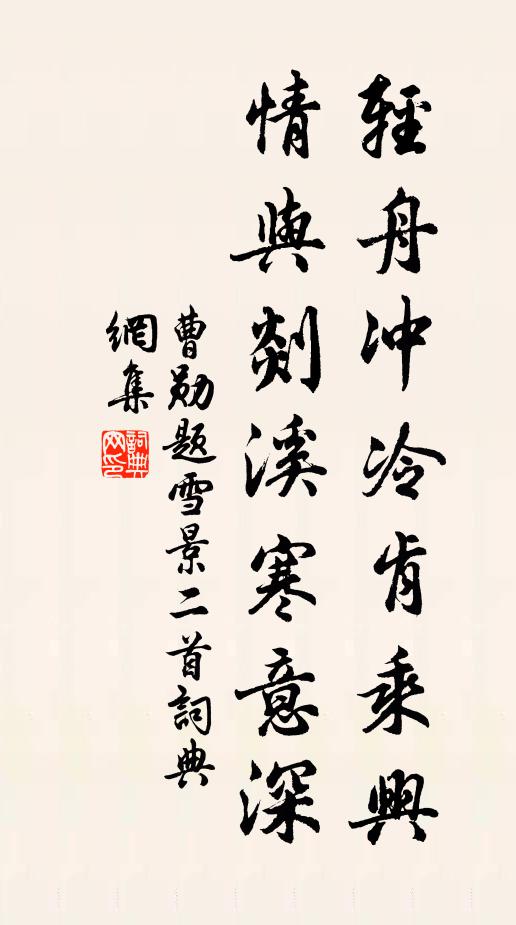 輕舟冲冷肯乘興
情與剡溪寒意深
曹勛題雪景二首詞典
網集
詞典網印